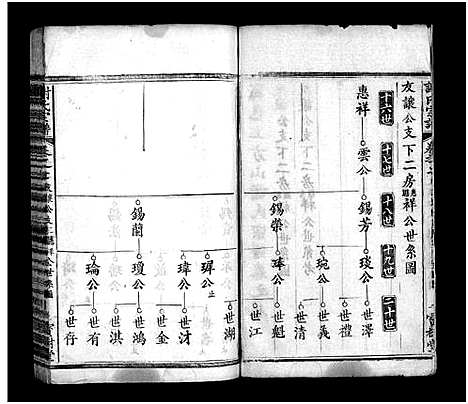 友讓公支下二房惠祥公世系圖
十六世
十七世
十八世
十九世
二十世
惠祥
雲公
錫芳
琰公
世澤
世禮
琬公
世義
世清
錫榮
世魁
世江
世湖
琿公止
瑋公
世財
世金
錫蘭
瓊公
世鴻
世淇
瑜公
世有
世存